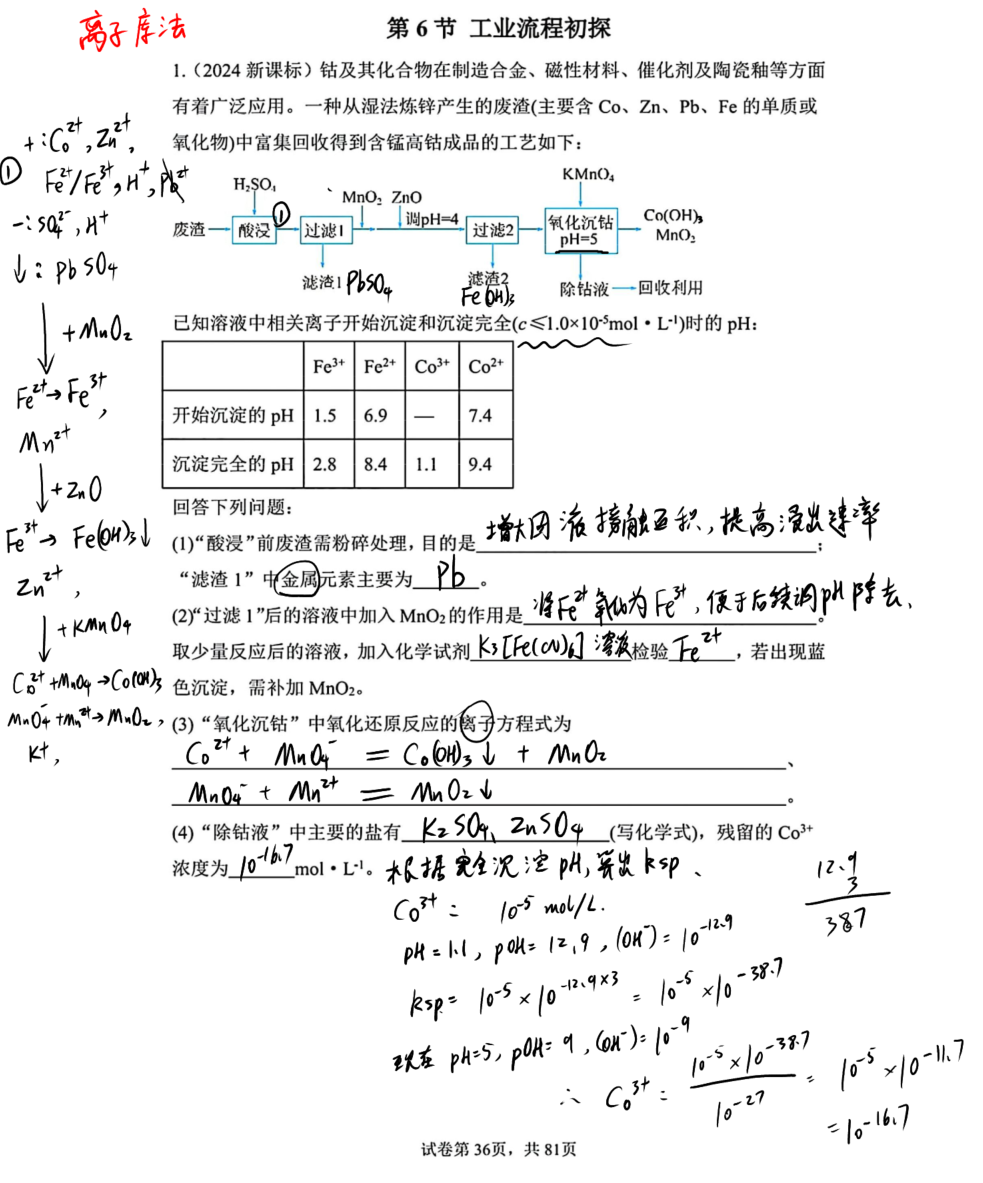 离子库法
第 6 节 工业流程初探
1.（2024 新课标）钴及其化合物在制造合金、磁性材料、催化剂及陶瓷釉等方面
有着广泛应用。一种从湿法炼锌产生的废渣(主要含 Co、Zn、Pb、Fe 的单质或
氧化物)中富集回收得到含锰高钴成品的工艺如下：
+:Co²⁺, Zn²⁺,
① Fe²⁺/Fe³⁺, H⁺, Pb²⁺
-: SO₄²⁻, H⁺
↓: PbSO₄
↓ +MnO₂
Fe²⁺→Fe³⁺,
Mn²⁺
↓ +ZnO
Fe³⁺→ Fe(OH)₃↓
Zn²⁺,
↓ +KMnO₄
Co²⁺+MnO₄→Co(OH)₃
MnO₄⁻+Mn²⁺→MnO₂,
K⁺,
H₂SO₄ MnO₂ ZnO KMnO₄
废渣 酸浸 ① 过滤1 调pH=4 过滤2 氧化沉钴 pH=5 Co(OH)₃ MnO₂
滤渣1 PbSO₄ 滤渣2 Fe(OH)₃ 除钴液 回收利用
已知溶液中相关离子开始沉淀和沉淀完全(c≤1.0×10⁻⁵mol·L⁻¹)时的 pH：
Fe³⁺ Fe²⁺ Co³⁺ Co²⁺
开始沉淀的 pH 1.5 6.9 — 7.4
沉淀完全的 pH 2.8 8.4 1.1 9.4
回答下列问题：
(1)“酸浸”前废渣需粉碎处理，目的是 增大固液接触面积,提高浸出速率；
“滤渣 1”中金属元素主要为 Pb 。
(2)“过滤 1”后的溶液中加入 MnO₂的作用是 将Fe²⁺氧化为Fe³⁺,便于后续调pH除去。
取少量反应后的溶液，加入化学试剂 K₃[Fe(CN)₆]溶液 检验 Fe²⁺ ，若出现蓝
色沉淀，需补加 MnO₂。
(3)“氧化沉钴”中氧化还原反应的离子方程式为
Co²⁺ + MnO₄⁻ = Co(OH)₃↓ + MnO₂ 、
MnO₄⁻ + Mn²⁺ = MnO₂↓ 。
(4)“除钴液”中主要的盐有 K₂SO₄、ZnSO₄ (写化学式)，残留的 Co³⁺
浓度为 10⁻¹⁶·⁷ mol·L⁻¹。 根据完全沉淀pH,算出ksp、
Co³⁺ = 10⁻⁵ mol/L.
pH=1.1, pOH=12.9, (OH⁻)=10⁻¹²·⁹
ksp= 10⁻⁵×10⁻¹²·⁹ˣ³ = 10⁻⁵×10⁻³⁸·⁷
12.9
3
387
现在 pH=5, pOH=9, (OH⁻)=10⁻⁹
∴ Co³⁺ = 10⁻⁵×10⁻³⁸·⁷ / 10⁻²⁷ = 10⁻⁵×10⁻¹¹·⁷
=10⁻¹⁶·⁷
试卷第 36页，共 81页